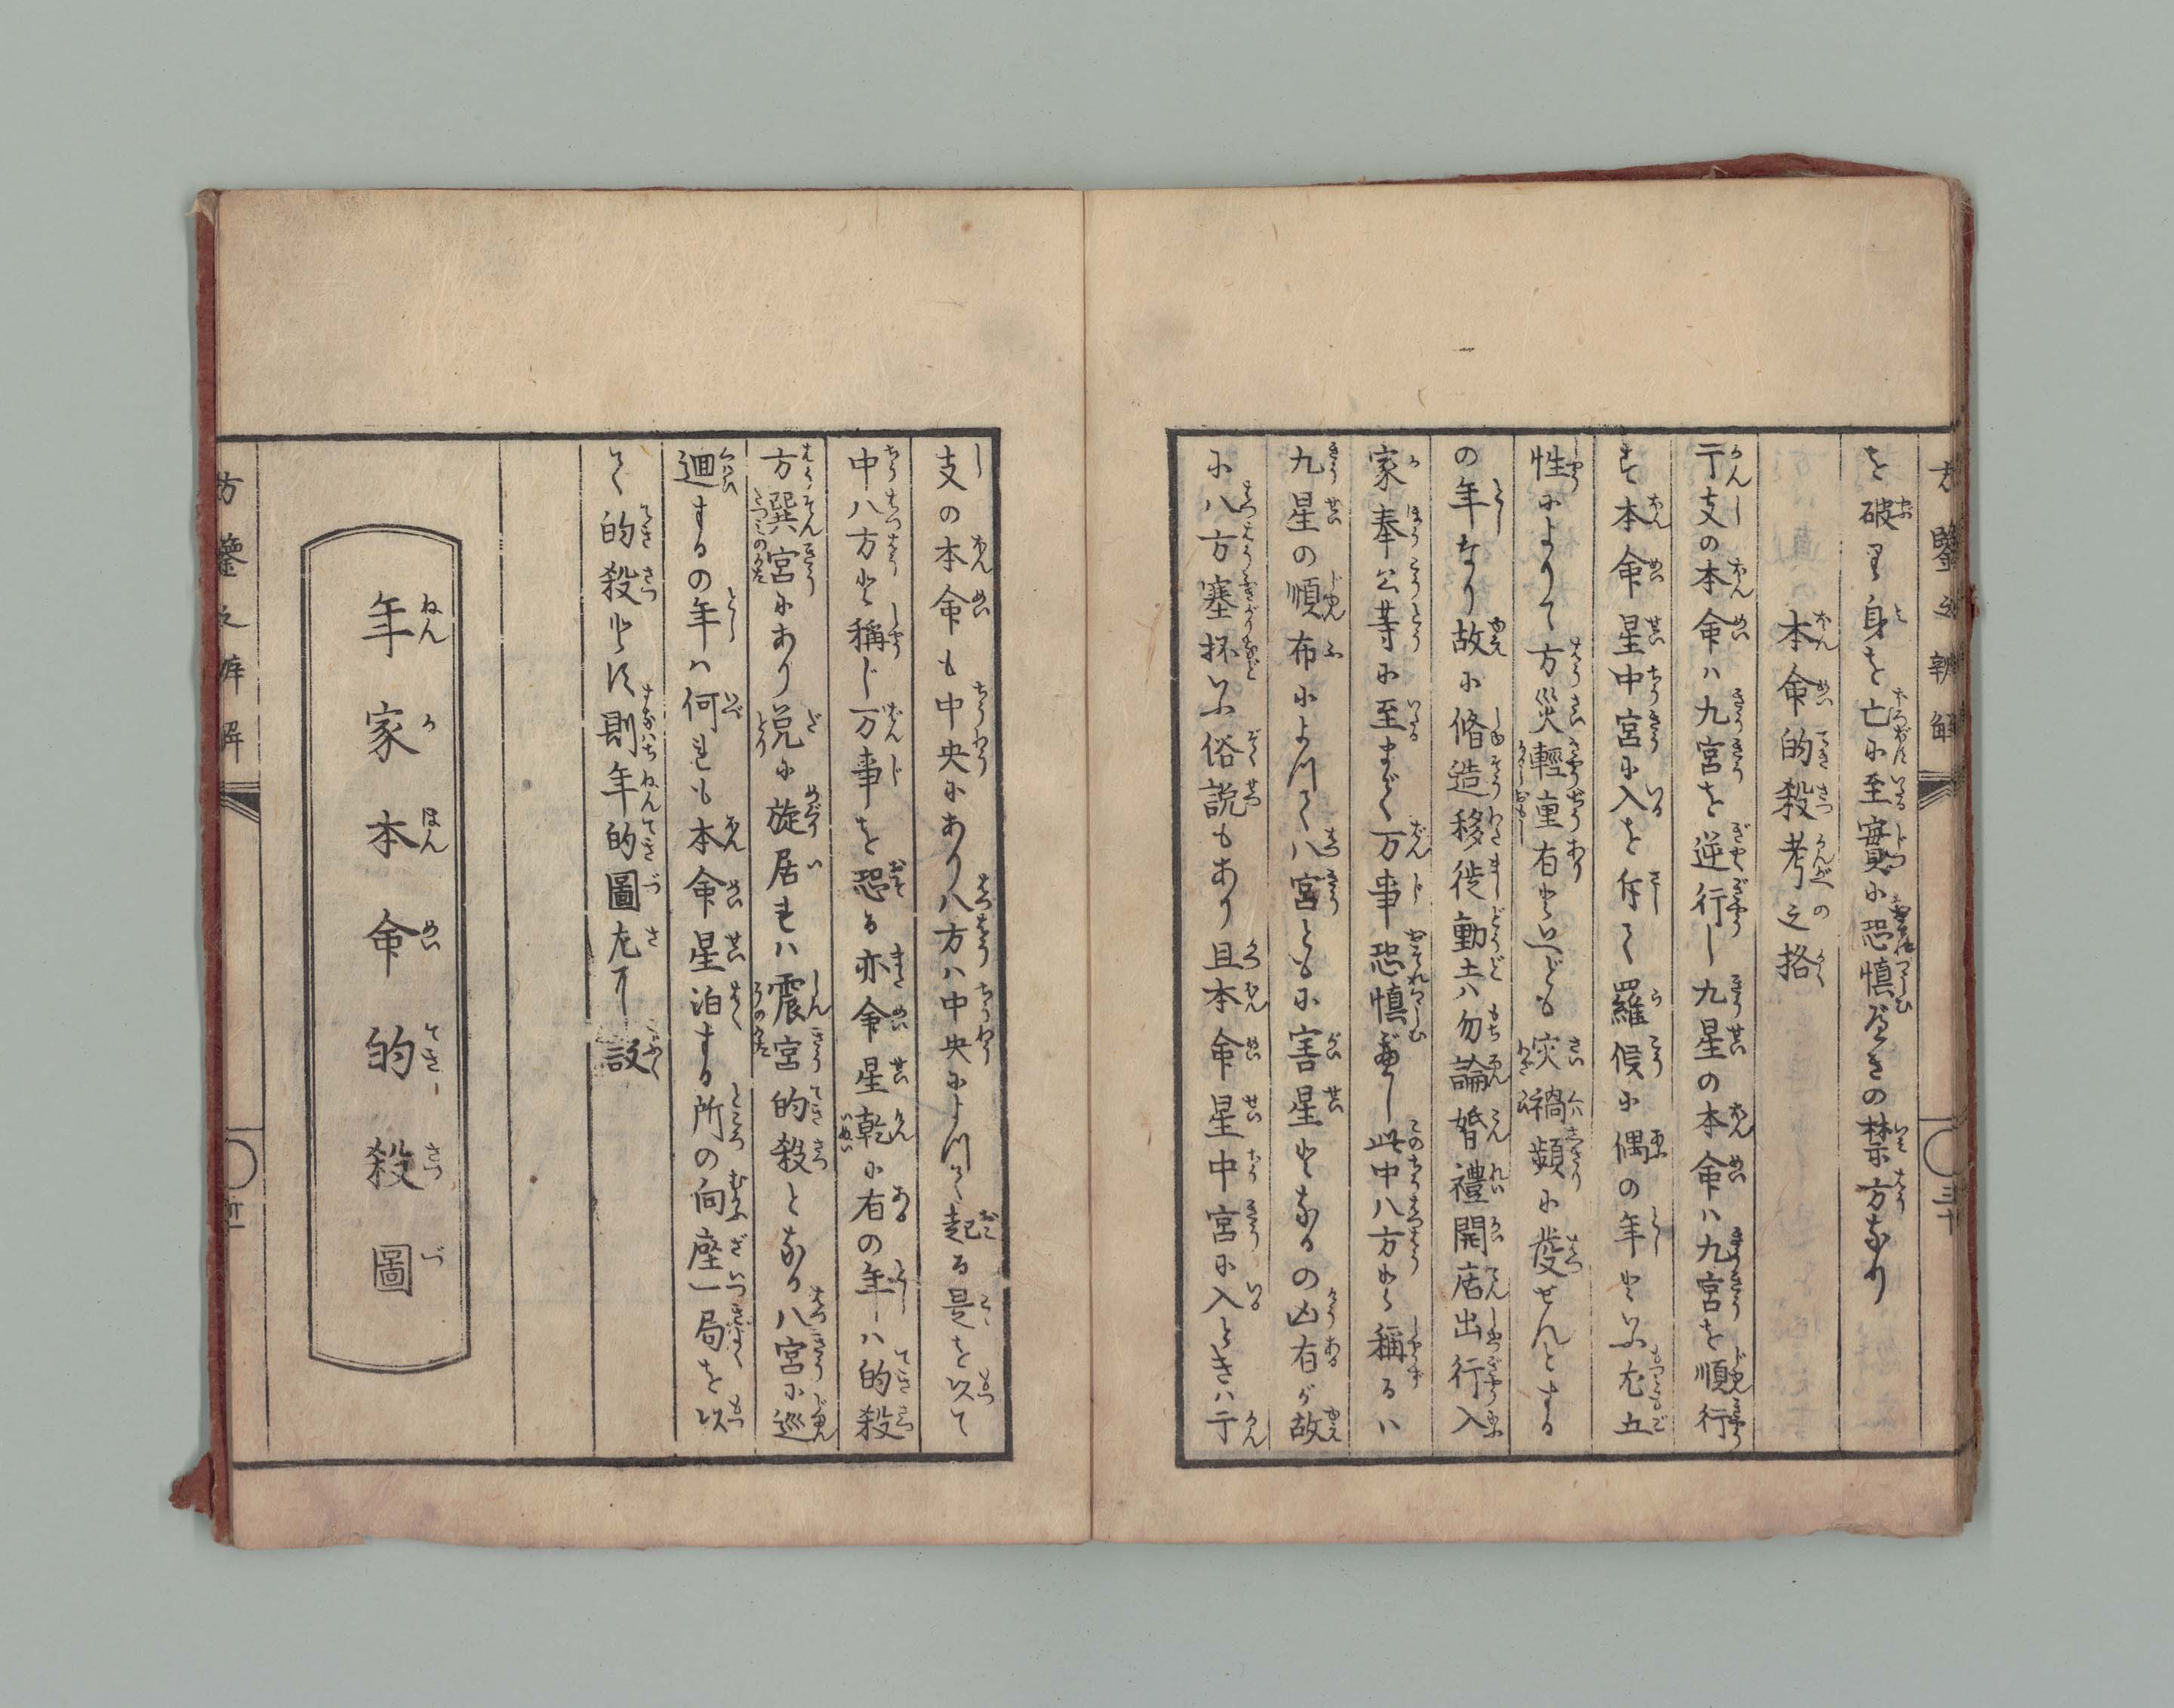 方鑒之辨解
三十
を破り身を亡に至實に恐慎べきの禁方なり
本命的殺考之格
干支の本命ハ九宮を逆行し九星の本命ハ九宮を順行
す本命星中宮に入を斥て羅候に偶の年といふ尤五
性によりて方災輕重有といへども灾禍頻に發せんとする
の年なり故に脩造移徙動土ハ勿論婚禮開店出行入
家奉公等に至まで万事恐慎べし此中八方と稱るハ
九星の順布によつて八宮ともに害星となるの凶有が故
に八方塞抔いふ俗説もあり且本命星中宮に入ときハ干
支の本命も中央にあり八方ハ中央によつて起る是を以て
中八方と稱じ万事を恐る亦命星乾に有の年ハ的殺
方巽宮にあり兌に旋居すれハ震宮的殺となる八宮に巡
廻するの年ハ何れも本命星泊する所の向座一局を以
て的殺とす則年的圖左ニ設
年家本命的殺圖
方鑒之辨解
丗一